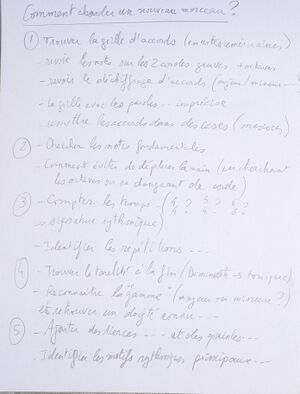 Comment aborder un nouveau morceau ?
① Trouver la grille d'accords (en notes américaines)
- revoir les notes sur les 2 cordes graves + octaves
- revoir le déchiffrage d'accords (majeur / mineur ...
- la grille avec les paroles .. imprécise
- remettre les accords dans des cases (mesures)
② - Chercher les notes fondamentales
- Comment éviter de déplacer la main (en cherchant
les octaves ou en changeant de corde)
③ - Compter les temps - ( 4/4 ? 3/4 ? 6/8 ?
signature rythmique)
- Identifier les répétitions - - -
④ - Trouver la tonalité à la fin (Dominante → tonique)
- Reconnaître la "gamme" (majeur ou mineure ?)
et retrouver un doigté connu - -
⑤ - Ajouter des tierces - - - et des quintes - -
- Identifier les motifs rythmiques principaux - - -